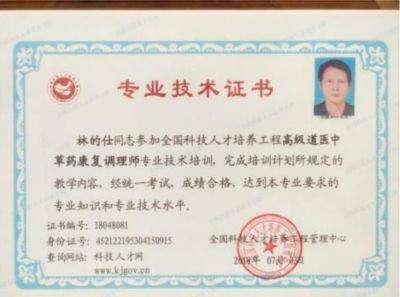 专业技术证书
林的仕同志参加全国科技人才培养工程高级道医中
草药康复调理师专业技术培训，完成培训计划所规定的
教学内容，经统一考试，成绩合格，达到本专业要求的
专业知识和专业技术水平．
证书编号：18048081
身份证号：452122195304150915
查询网站：科技人才网
www.kjgov.cn
全国科技人才培养工程管理中心